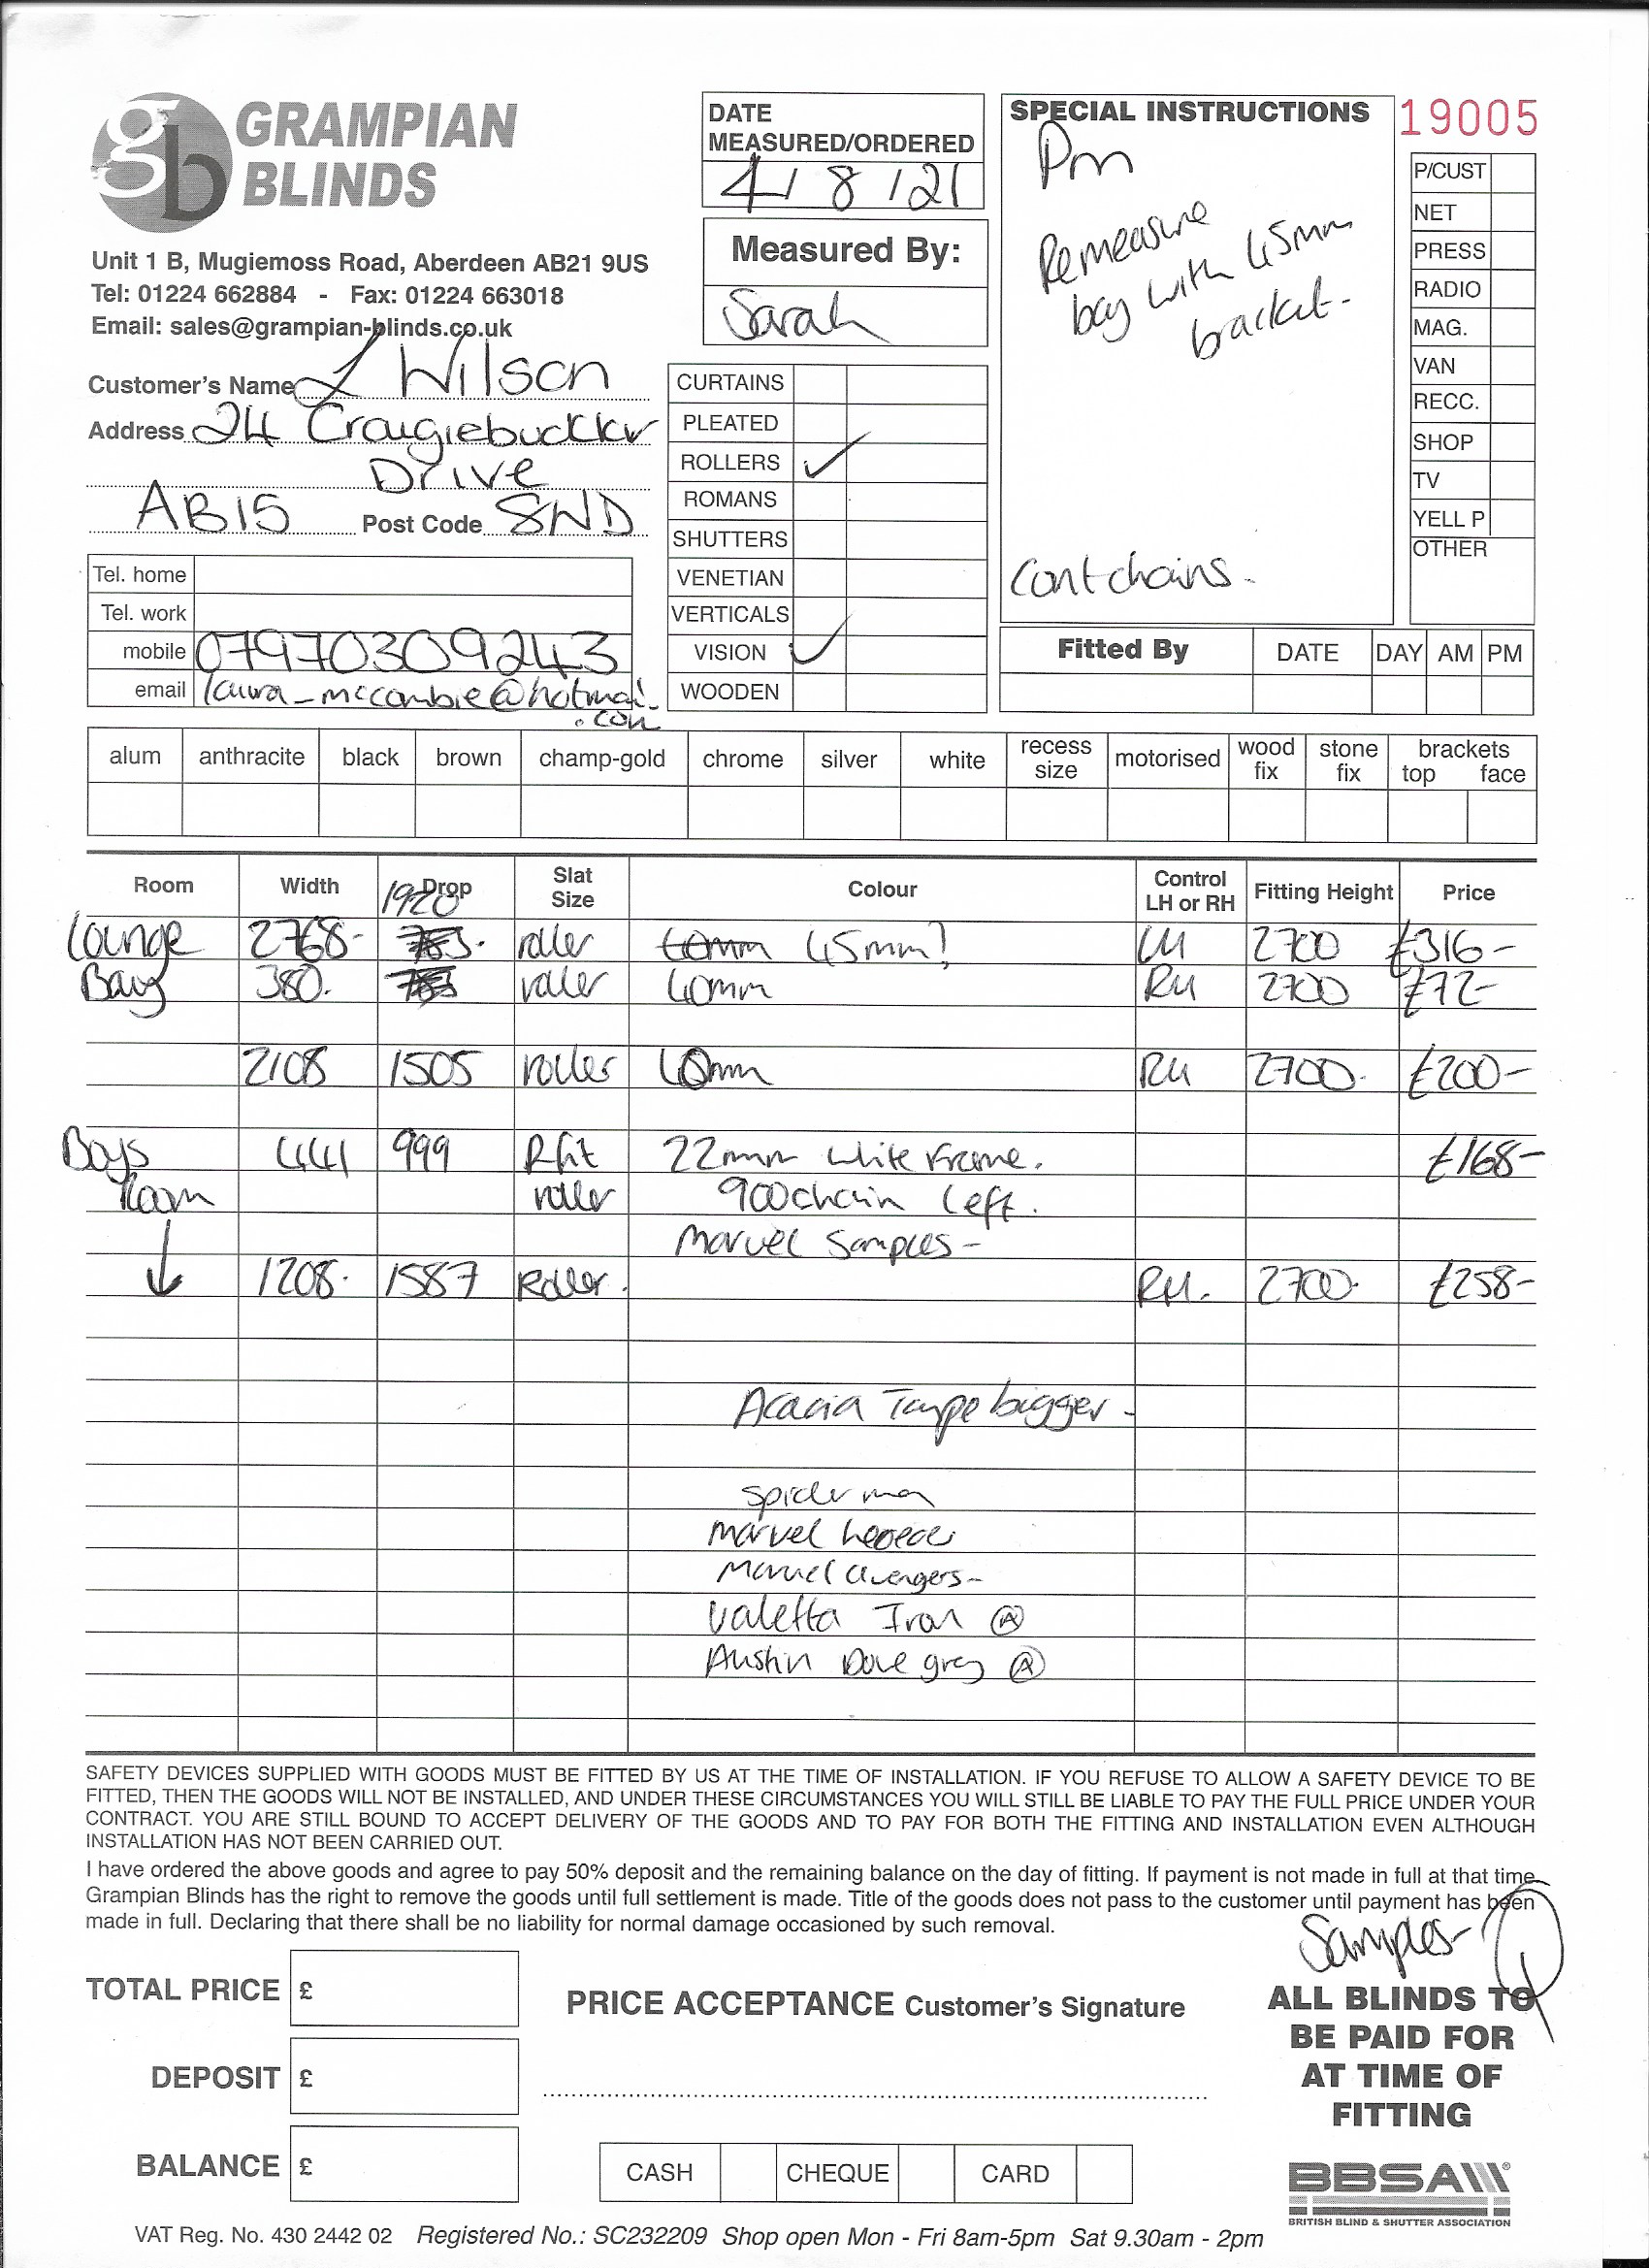 gb GRAMPIAN BLINDS
Unit 1 B, Mugiemoss Road, Aberdeen AB21 9US
Tel: 01224 662884 - Fax: 01224 663018
Email: sales@grampian-blinds.co.uk
Customer's Name L Wilson
Address 24 Craigiebuckler
Drive
AB15 Post Code 8ND
Tel. home
Tel. work
mobile 07970309243
email laura_mccombie@hotmail
.com
DATE
MEASURED/ORDERED
4/8/21
Measured By:
Sarah
CURTAINS
PLEATED
ROLLERS ✓
ROMANS
SHUTTERS
VENETIAN
VERTICALS
VISION ✓
WOODEN
SPECIAL INSTRUCTIONS
Pm
Remeasure
bay with 45mm
bracket-
Cont chains-
19005
P/CUST
NET
PRESS
RADIO
MAG.
VAN
RECC.
SHOP
TV
YELL P
OTHER
Fitted By DATE DAY AM PM
alum anthracite black brown champ-gold chrome silver white recess size motorised wood fix stone fix brackets top face
Room Width Drop Slat Size Colour Control LH or RH Fitting Height Price
1920
Lounge 2768- roller 40mm 45mm? LH 2700 £316-
Bay 380. roller 40mm RH 2700 £72-
2108 1505 roller 40mm RH 2700- £200-
Boys 441 999 Pfit 22mm white Frame. £168-
Room roller 900chain Left.
Marvel Samples-
↓ 1208- 1587 Roller. RH. 2700- £258-
Acacia Taupe bigger-
Spiderman
Marvel
Marvel avengers-
Valetta Iron Ⓐ
Austin Dove grey Ⓐ
SAFETY DEVICES SUPPLIED WITH GOODS MUST BE FITTED BY US AT THE TIME OF INSTALLATION. IF YOU REFUSE TO ALLOW A SAFETY DEVICE TO BE
FITTED, THEN THE GOODS WILL NOT BE INSTALLED, AND UNDER THESE CIRCUMSTANCES YOU WILL STILL BE LIABLE TO PAY THE FULL PRICE UNDER YOUR
CONTRACT. YOU ARE STILL BOUND TO ACCEPT DELIVERY OF THE GOODS AND TO PAY FOR BOTH THE FITTING AND INSTALLATION EVEN ALTHOUGH
INSTALLATION HAS NOT BEEN CARRIED OUT.
I have ordered the above goods and agree to pay 50% deposit and the remaining balance on the day of fitting. If payment is not made in full at that time
Grampian Blinds has the right to remove the goods until full settlement is made. Title of the goods does not pass to the customer until payment has been
made in full. Declaring that there shall be no liability for normal damage occasioned by such removal.
Samples-
TOTAL PRICE £
DEPOSIT £
BALANCE £
PRICE ACCEPTANCE Customer's Signature
CASH CHEQUE CARD
ALL BLINDS TO
BE PAID FOR
AT TIME OF
FITTING
BBSA
BRITISH BLIND & SHUTTER ASSOCIATION
VAT Reg. No. 430 2442 02 Registered No.: SC232209 Shop open Mon - Fri 8am-5pm Sat 9.30am - 2pm